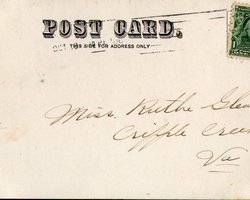 POST CARD.
THIS SIDE FOR ADDRESS ONLY
Miss. Ruthe
Cripple Creek
Va